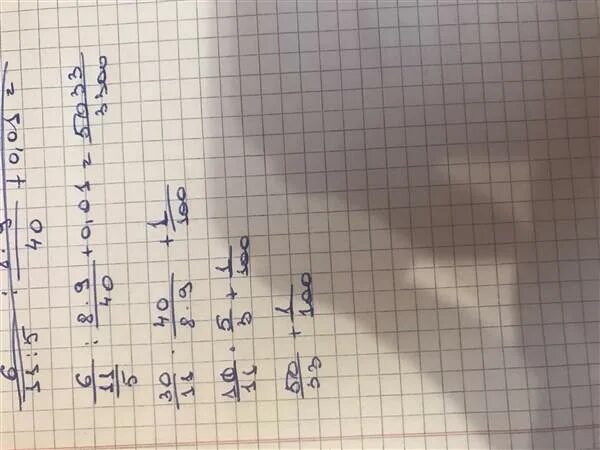 6/11:5 : 8·9/40 + 0,01 =
6/11/5 : 8·9/40 + 0,01 = 5033/3300
30/11 · 40/8·9 + 1/100
10/11 · 5/3 + 1/100
50/33 + 1/100